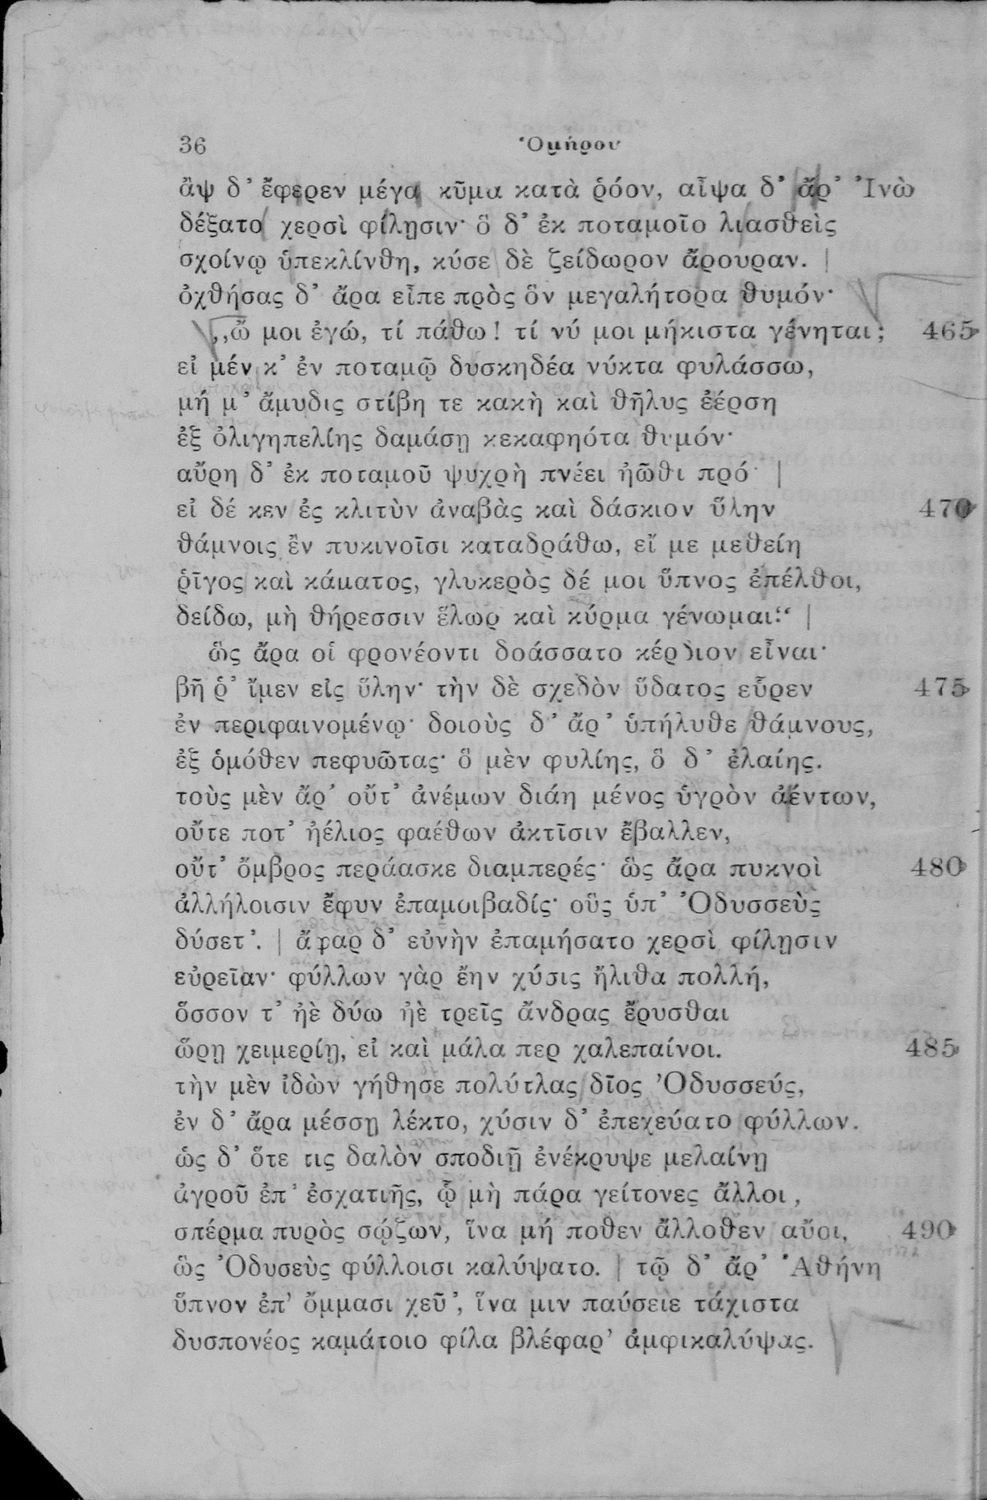 36 Ὁμήρου
ἂψ δ’ ἔφερεν μέγα κῦμα κατὰ ῥόον, αἶψα δ’ ἄρ’ Ἰνὼ
δέξατο χερσὶ φίλῃσιν· ὃ δ’ ἐκ ποταμοῖο λιασθεὶς
σχοίνῳ ὑπεκλίνθη, κύσε δὲ ζείδωρον ἄρουραν.
ὀχθήσας δ’ ἄρα εἶπε πρὸς ὃν μεγαλήτορα θυμόν·
„ὤ μοι ἐγώ, τί πάθω! τί νύ μοι μήκιστα γένηται; 465
εἰ μέν κ’ ἐν ποταμῷ δυσκηδέα νύκτα φυλάσσω,
μή μ’ ἄμυδις στίβη τε κακὴ καὶ θῆλυς ἐέρση
ἐξ ὀλιγηπελίης δαμάσῃ κεκαφηότα θυμόν·
αὔρη δ’ ἐκ ποταμοῦ ψυχρὴ πνέει ἠῶθι πρό·
εἰ δέ κεν ἐς κλιτὺν ἀναβὰς καὶ δάσκιον ὕλην 470
θάμνοις ἒν πυκινοῖσι καταδράθω, εἴ με μεθείη
ῥῖγος καὶ κάματος, γλυκερὸς δέ μοι ὕπνος ἐπέλθοι,
δείδω, μὴ θήρεσσιν ἕλωρ καὶ κύρμα γένωμαι.“
ὣς ἄρα οἱ φρονέοντι δοάσσατο κέρδιον εἶναι·
βῆ ῥ’ ἴμεν εἰς ὕλην· τὴν δὲ σχεδὸν ὕδατος εὗρεν 475
ἐν περιφαινομένῳ· δοιοὺς δ’ ἄρ’ ὑπήλυθε θάμνους,
ἐξ ὁμόθεν πεφυῶτας· ὃ μὲν φυλίης, ὃ δ’ ἐλαίης.
τοὺς μὲν ἄρ’ οὔτ’ ἀνέμων διάη μένος ὑγρὸν ἀέντων,
οὔτε ποτ’ ἠέλιος φαέθων ἀκτῖσιν ἔβαλλεν,
οὔτ’ ὄμβρος περάασκε διαμπερές· ὣς ἄρα πυκνοὶ 480
ἀλλήλοισιν ἔφυν ἐπαμοιβαδίς· οὓς ὑπ’ Ὀδυσσεὺς
δύσετ’. ἄφαρ δ’ εὐνὴν ἐπαμήσατο χερσὶ φίλῃσιν
εὐρεῖαν· φύλλων γὰρ ἔην χύσις ἤλιθα πολλή,
ὅσσον τ’ ἠὲ δύω ἠὲ τρεῖς ἄνδρας ἔρυσθαι
ὥρῃ χειμερίῃ, εἰ καὶ μάλα περ χαλεπαίνοι. 485
τὴν μὲν ἰδὼν γήθησε πολύτλας δῖος Ὀδυσσεύς,
ἐν δ’ ἄρα μέσσῃ λέκτο, χύσιν δ’ ἐπεχεύατο φύλλων.
ὡς δ’ ὅτε τις δαλὸν σποδιῇ ἐνέκρυψε μελαίνῃ
ἀγροῦ ἐπ’ ἐσχατιῆς, ᾧ μὴ πάρα γείτονες ἄλλοι,
σπέρμα πυρὸς σῴζων, ἵνα μή ποθεν ἄλλοθεν αὔοι, 490
ὣς Ὀδυσεὺς φύλλοισι καλύψατο. τῷ δ’ ἄρ’ Ἀθήνη
ὕπνον ἐπ’ ὄμμασι χεῦ’, ἵνα μιν παύσειε τάχιστα
δυσπονέος καμάτοιο φίλα βλέφαρ’ ἀμφικαλύψας.